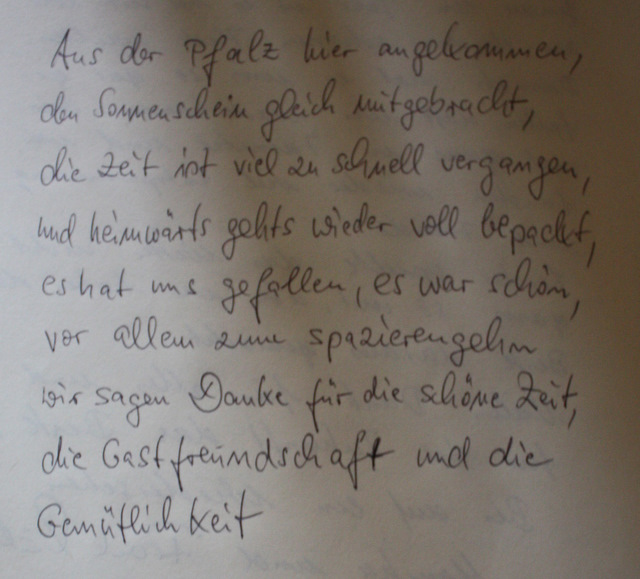 Aus der Pfalz hier angekommen,
den Sonnenschein gleich mitgebracht,
die Zeit ist viel zu schnell vergangen,
und heimwärts gehts wieder voll bepackt,
es hat uns gefallen, es war schön,
vor allem zum spazierengehn
wir sagen Danke für die schöne Zeit,
die Gastfreundschaft und die
Gemütlichkeit